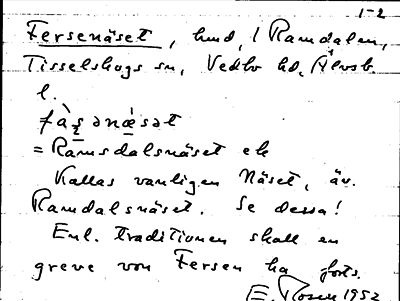 1-2
Fersenäset, hmd, i Ramdalen,
Tisselskogs sn, Vedbo hd, Älvsb.
l.
fà̀ʂənǽsət
= Ramsdalsnäset ek
Kallas vanligen Näset, äv.
Ramdalsnäset. Se dessa!
Enl. traditionen skall en
greve von Fersen ha forts.
E. Rosén 1952